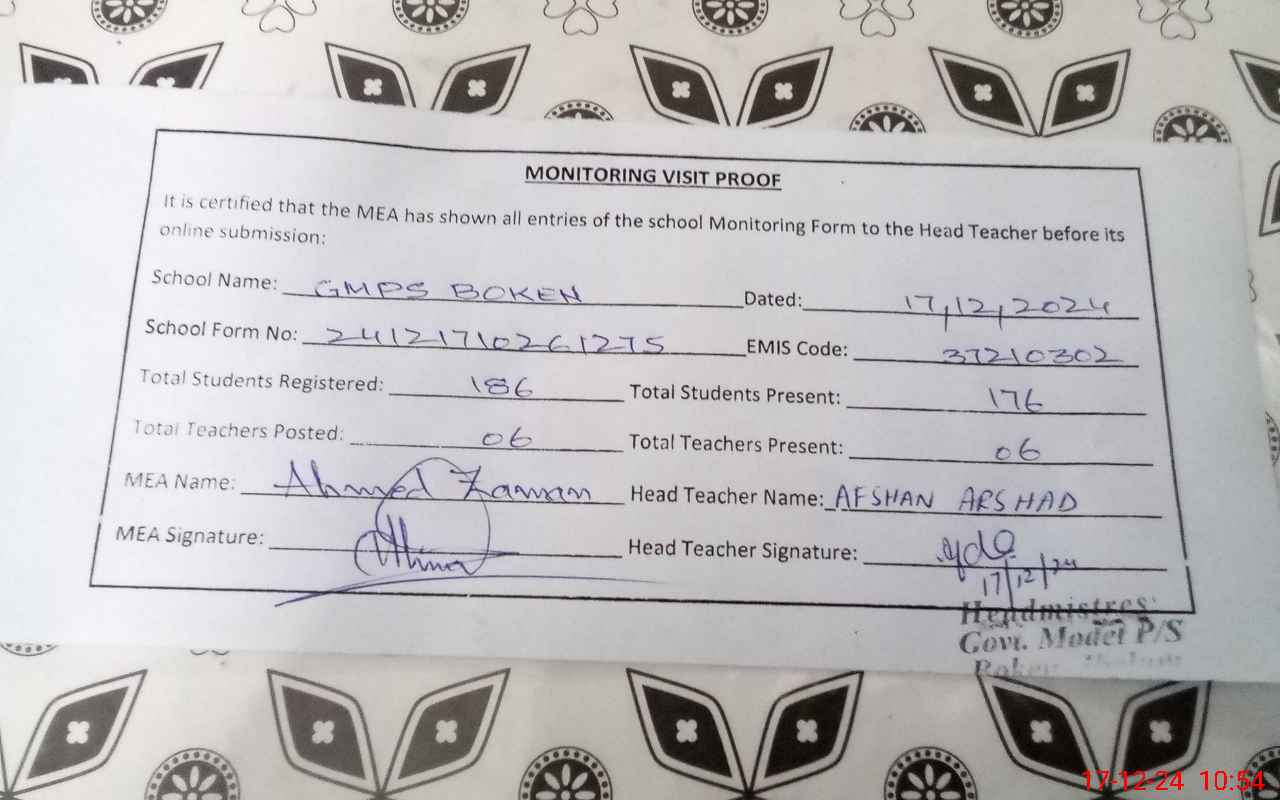 MONITORING VISIT PROOF
It is certified that the MEA has shown all entries of the school Monitoring Form to the Head Teacher before its
online submission:
School Name: GMPS BOKEN Dated: 17,12,2024
School Form No: 24121710261275 EMIS Code: 37210302
Total Students Registered: 186 Total Students Present: 176
Total Teachers Posted: 06 Total Teachers Present: 06
MEA Name: Ahmed Zaman Head Teacher Name: AFSHAN ARSHAD
MEA Signature: Head Teacher Signature:
17/12/24
Headmistres
Govt. Model P/S
Boken
17-12-24 10:54